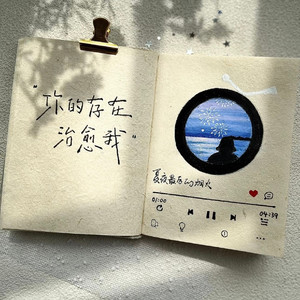 “你的存在
治愈我”
夏夜最后的烟火
01:00
04:19